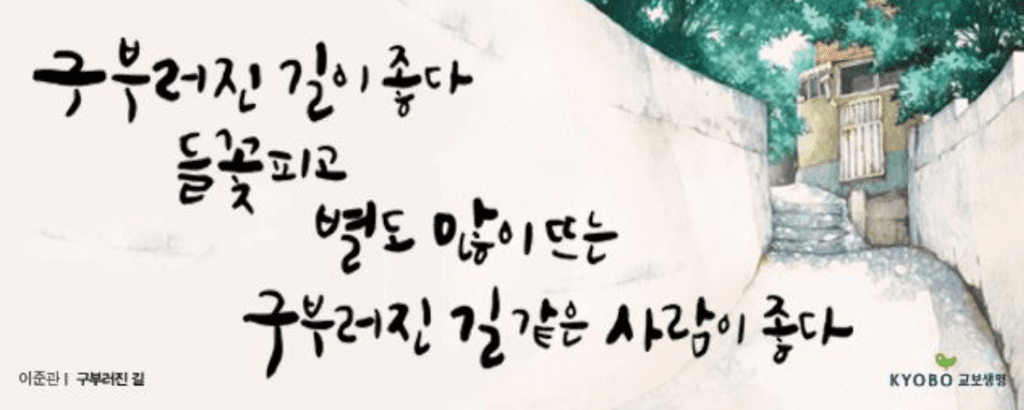 구부러진 길이 좋다
들꽃피고
별도 많이 뜨는
구부러진 길 같은 사람이 좋다
이준관 | 구부러진 길
KYOBO 교보생명